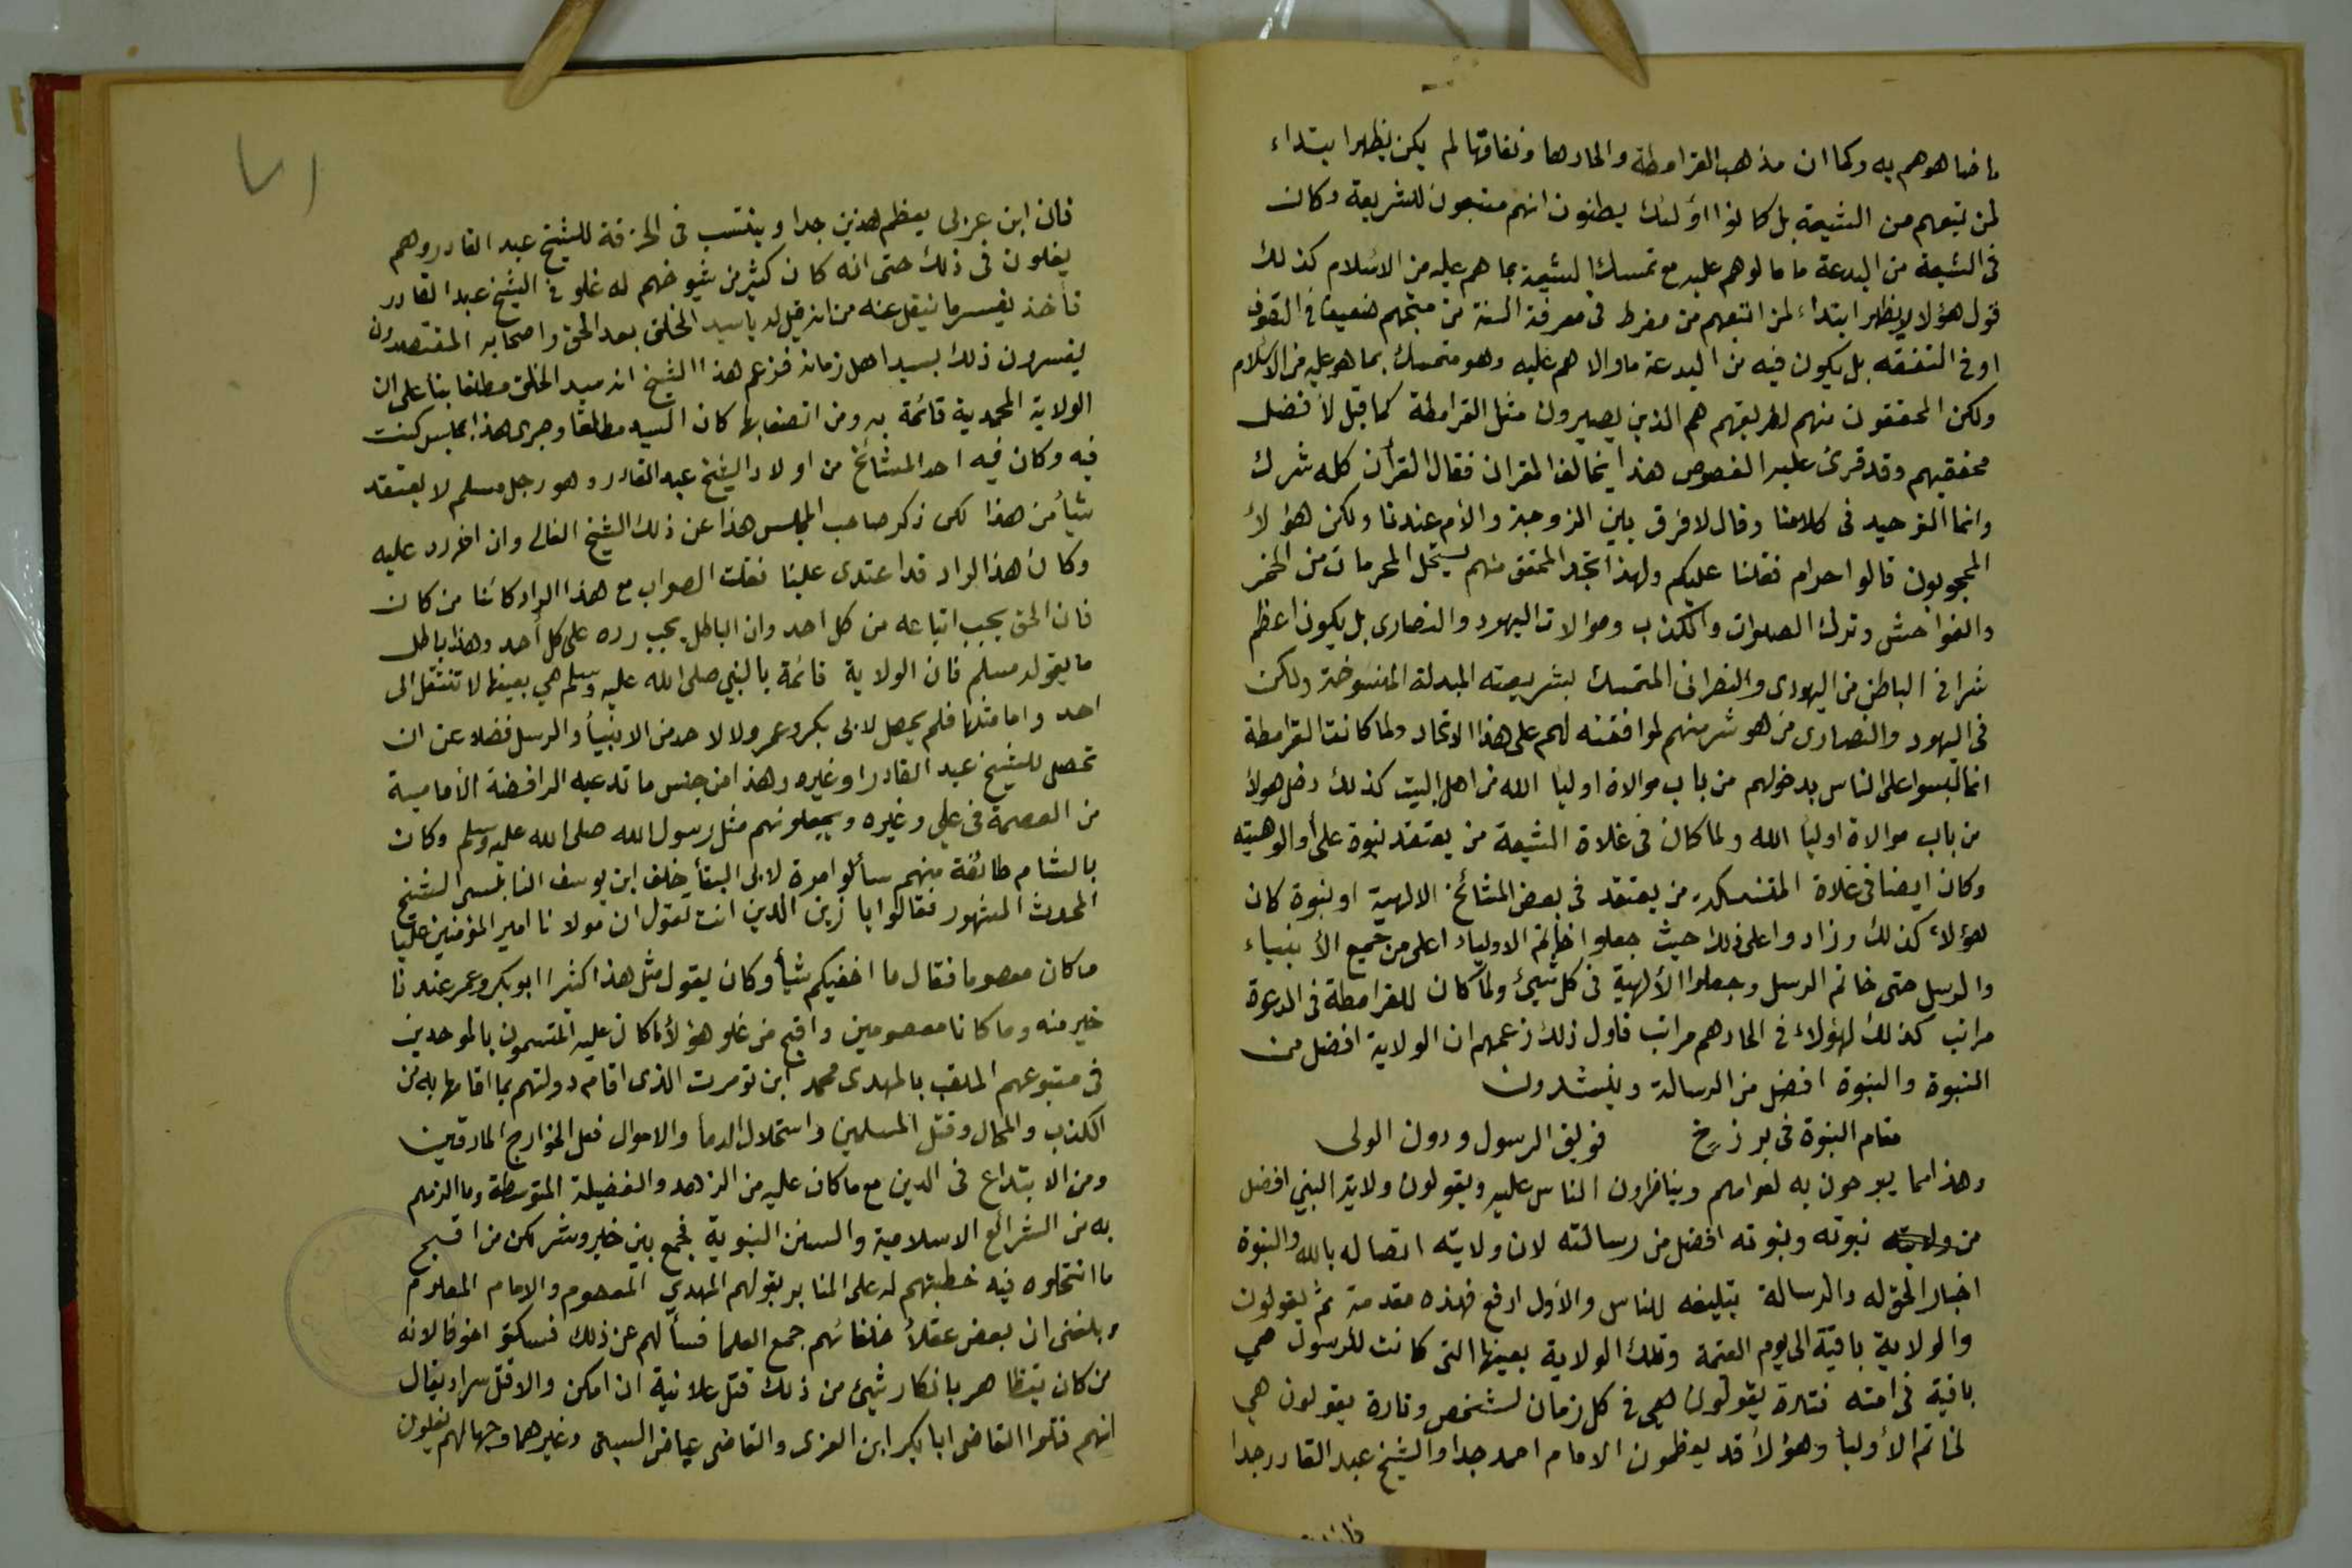 ما ضاهوهم به وكما ان مذهب القرامطة والحادها ونفاقها لم يكن يظهر ابتداء
لمن تبعهم من الشيعة بل كانوا اولئك يظنون انهم متبعون للشريعة وكان
فى الشيعة من البدعة ما مالوهم عليه مع تمسك الشيعة بما هم عليه من الاسلام كذلك
قول هؤلا لا يظهر ابتداء لمن اتبعهم من مفرط فى معرفة السنة من متجهم ضعيف فى التصوف
او فى التفقه بل يكون فيه من البدعة ما والا هم عليه وهو متمسك بما هو عليه من الاسلام
ولكن المحققون منهم لطريقهم هم الذين يصيرون مثل القرامطة كما قيل لأفضل
محققيهم وقد قرئ عليه الفصوص هذا يخالف القران فقال القرأن كله شرك
وانما التوحيد فى كلامنا وقال لا فرق بين الزوجة والأم عندنا ولكن هؤلأ
المحجوبون قالوا حرام فقلنا عليكم ولهذا تجد المحقق منهم يستحل المحرمات من الخمر
والفواحش وترك الصلوات والكذب وموالات اليهود والنصارى بل يكون اعظم
شرا فى الباطن من اليهودى والنصرانى المتمسك بشريعته المبدلة المنسوخة ولكن
فى اليهود والنصارى من هو شر منهم لموافقته لهم على هذا الاتحاد ولما كانت القرامطة
انما لبسوا على الناس بدخولهم من باب موالاة اوليا الله من اهل البيت كذلك دخل هولأ
من باب موالاة اوليأ الله ولما كان فى غلاة الشيعة من يعتقد نبوة على أو الوهيته
وكان ايضا فى غلاة المتنسكة من يعتقد فى بعض المشائخ الالهية او نبوة كان
هؤلاء كذلك وزادوا على ذلك حيث جعلوا خاتم الاولياء اعلى من جميع الأنبياء
والرسل حتى خاتم الرسل وجعلوا الألهية فى كل شيئ ولما كان للقرامطة فى الدعوة
مراتب كذلك لهؤلاء فى الحادهم مراتب فاول ذلك زعمهم ان الولاية افضل من
النبوة والنبوة افضل من الرسالة وينشدون
مقام النبوة فى برزخ فويق الرسول ودون الولى
وهذا مما يبوحون به لعوامهم ويناظرون الناس عليه ويقولون ولاية النبي افضل
من ولايته نبوته ونبوته افضل من رسالته لان ولايته اتصاله بالله والنبوة
اخبار الحق له والرسالة بتبليغه للناس والأول ارفع فهذه مقدمة ثم يقولون
والولاية باقية الى يوم القيمة وتلك الولاية بعينها التى كانت للرسول هي
باقية فى امته فتارة يقولون هي فى كل زمان لشخص وتارة يقولون هي
لخاتم الأوليأ وهؤلأ قد يعظمون الامام احمد جدا والشيخ عبد القادر جدا
٧١
فان ابن عربى يعظم هذين جدا وينتسب فى الخرقة للشيخ عبد القادر وهم
يغلون فى ذلك حتى انه كان كثير من شيوخهم له غلو فى الشيخ عبد القادر
فأخذ يفسر ما نيقل عنه من انه قيل له يا سيد الخلق بعد الحق واصحابه المقتصدون
يفسرون ذلك بسيد اهل زمانه فزعم هذا الشيخ انه سيد الخلق مطلقا بنأ على ان
الولاية المحمدية قائمة به ومن اتصف بها كان السيد مطلقا وجرى هذا بمجلس كنت
فيه وكان فيه احد المشائخ من اولاد الشيخ عبد القادر وهو رجل مسلم لا يعتقد
شيأ من هذا لكن ذكر صاحب المجلس هذا عن ذلك الشيخ الغالى وان اخر رد عليه
وكان هذا الراد قد اعتدى علينا فقلت الصواب مع هذا الراد كائنا من كان
فان الحق يجب اتباعه من كل احد وان الباطل يجب رده على كل أحد وهذا باطل
ما يقوله مسلم فان الولاية قائمة بالنبي صلى الله عليه وسلم هي بعينها لا تنتقل الى
احد واما مثلها فلم يحصل لابى بكر وعمر ولا لاحد من الانبيأ والرسل فضلا عن ان
تحصل للشيخ عبد القادر او غيره وهذا من جنس ما تدعيه الرافضة الامامية
من العصمة فى علي وغيره ويجعلونهم مثل رسول الله صلى الله عليه وسلم وكان
بالشام طائفة منهم سألوا مرة لابى البقأ خلف ابن يوسف النابلسى الشيخ
المحدث المشهور فقالوا يا زين الدين انت تقول ان مولانا امير المؤمنين عليا
ما كان معصوما فقال ما اخفيكم شيأ وكان يقول مثل هذا كثيرا ابو بكر وعمر عندنا
خير منه وما كانا معصومين واقبح من غلو هؤلأ ما كان عليه المتسمون بالموحدين
فى متبوعهم الملقب بالمهدى محمد ابن تومرت الذى اقام دولتهم بما اقامها به من
الكذب والمحال وقتل المسلمين واستحلال الدمأ والاموال فعل الخوارج المارقين
ومن الابتداع فى الدين مع ما كان عليه من الزهد والفضيلة المتوسطة وما الزمهم
به من الشرائع الاسلامية والسنن النبوية فجمع بين خير وشر لكن من اقبح
ما انتحلوه فيه خطبتهم له على المنابر بقولهم المهدي المعصوم والامام المعلوم
وبلغنى ان بعض عقلأ خلفائهم جمع العلما فسألهم عن ذلك فسكتوا خوفا لانه
من كان يتظاهر بانكار شيئ من ذلك قتل علانية ان امكن والا قتل سرا ويقال
انهم قتلوا القاضى ابا بكر ابن العربى والقاضى عياض السبتى وغيرهما وجهالهم يغلون